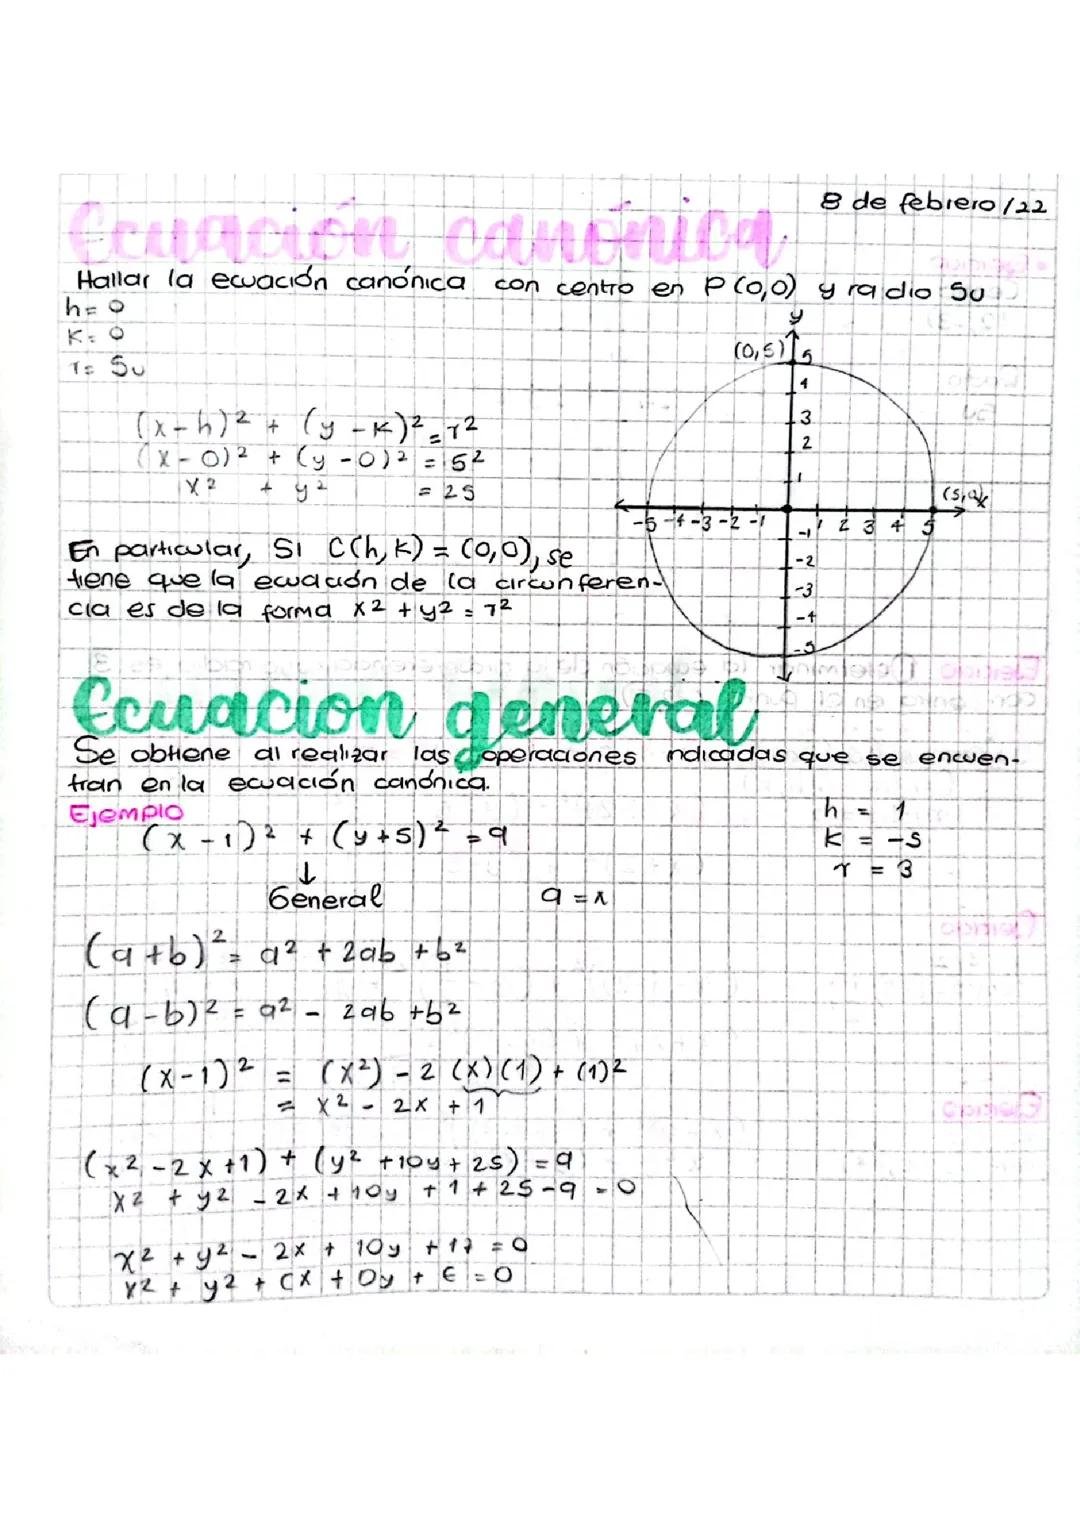 8 de febrero / 22
Ecuación canónica
Hallar la ecuación canónica con centro en P(0,0) y radio 5u
h= 0
K= 0
r= 5u
(x-h)² + (y-K)² = r²
(x-0)² + (y-0)² = 5²
x² + y² = 25
y
(0,5)
5
4
3
2
1
(5,0)
x
-5 -4 -3 -2 -1 1 2 3 4 5
-1
-2
-3
-4
-5
En particular, si C(h,k) = (0,0), se
tiene que la ecuación de la circunferen-
cia es de la forma x² + y² = r²
Ecuacion general
Se obtiene al realizar las operaciones indicadas que se encuen-
tran en la ecuación canónica.
Ejemplo
(x-1)² + (y+5)² = 9
h = 1
K = -5
r = 3
↓
General
(a+b)² = a² + 2ab + b²
(a-b)² = a² - 2ab + b²
(x-1)² = (x²) - 2 (x)(1) + (1)²
= x² - 2x + 1
(x² - 2x + 1) + (y² + 10y + 25) = 9
x² + y² - 2x + 10y + 1 + 25 - 9 = 0
x² + y² - 2x + 10y + 17 = 0
x² + y² + Cx + Dy + E = 0